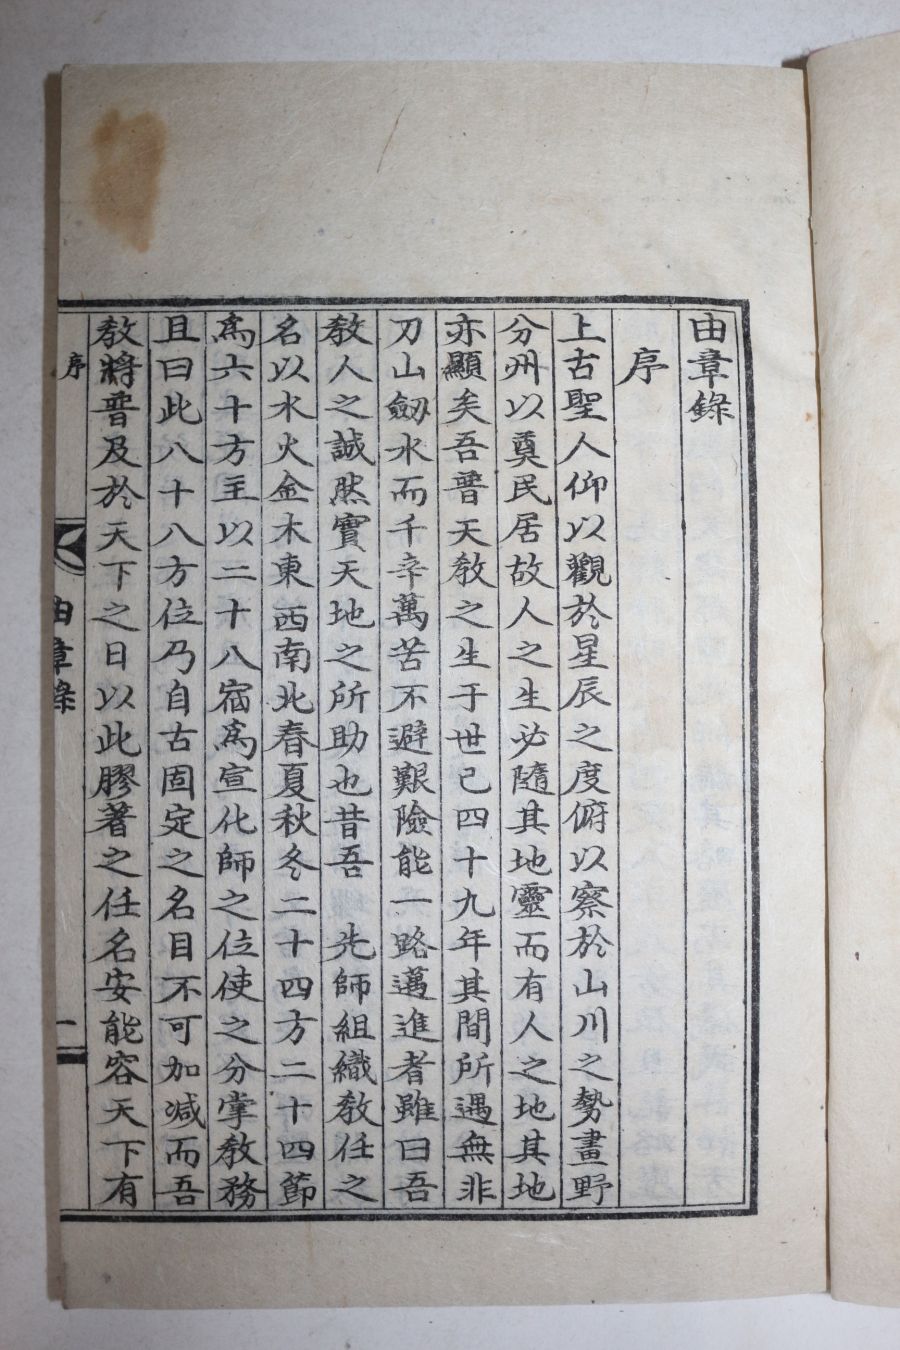 由章錄
序
上古聖人仰以觀於星辰之度俯以察於山川之勢畫野
分州以奠民居故人之生必隨其地靈而有人之地其地
亦顯矣吾普天敎之生于世已四十九年其間所遇無非
刀山劒水而千辛萬苦不避艱險能一路邁進者雖曰吾
敎人之誠然實天地之所助也昔吾 先師組織敎任之
名以水火金木東西南北春夏秋冬二十四方二十四節
爲六十方主以二十八宿爲宣化師之位使之分掌敎務
且曰此八十八方位乃自古固定之名目不可加减而吾
敎將普及於天下之日以此膠著之任名安能容天下有
序
由章錄
一